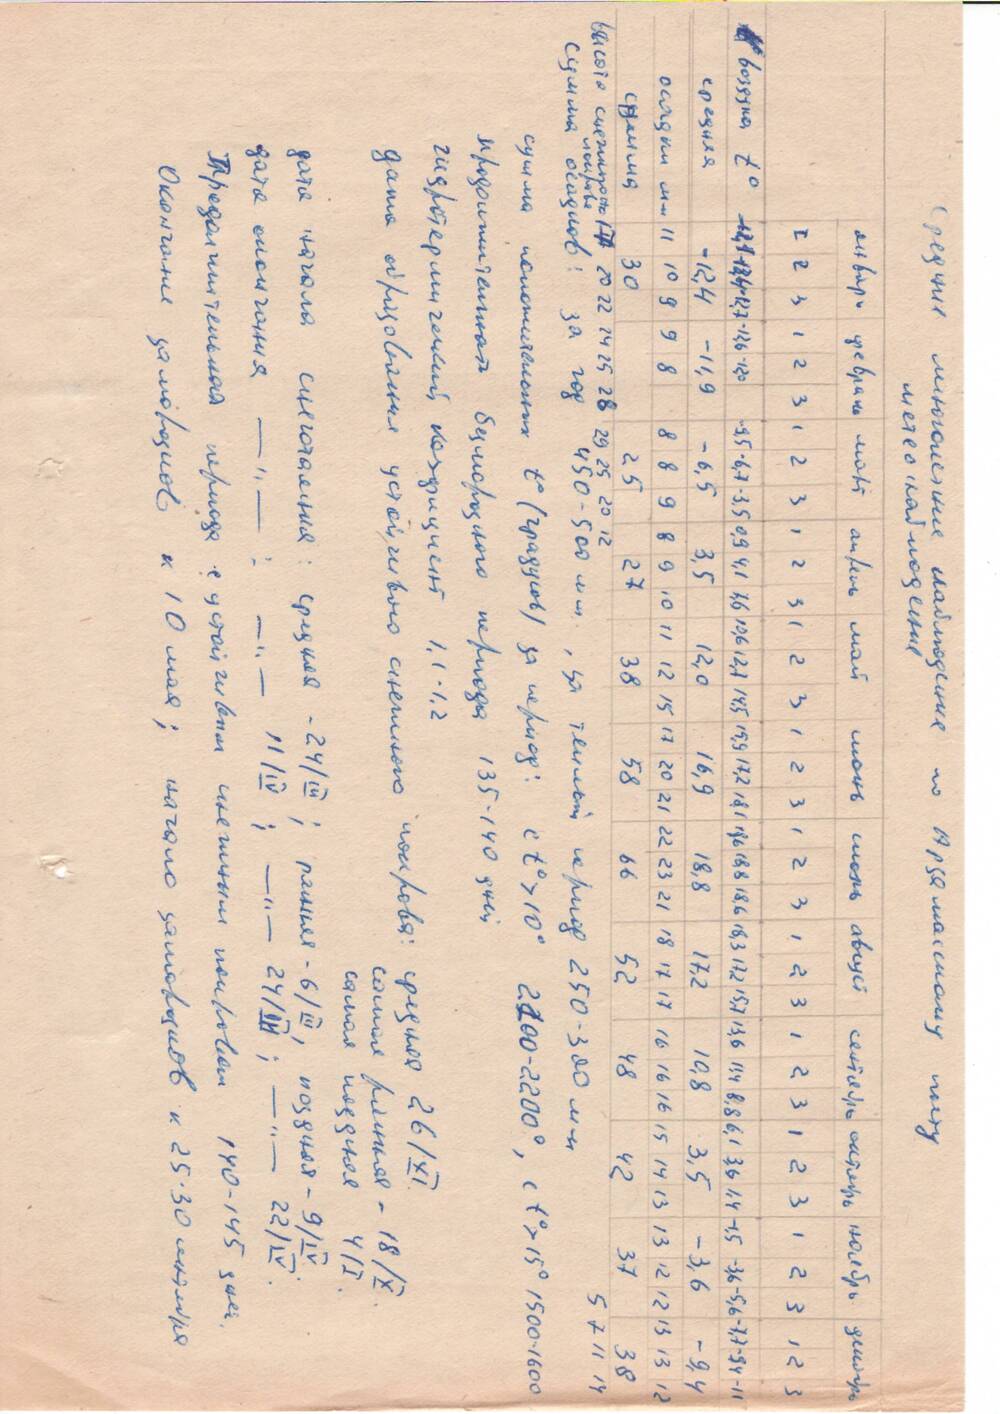 Средние многолетние наблюдение по Арзамасскому посту
метеонаблюдения
январь февраль март апрель май июнь июль август сентябрь октябрь ноябрь декабрь
1 2 3 1 2 3 1 2 3 1 2 3 1 2 3 1 2 3 1 2 3 1 2 3 1 2 3 1 2 3 1 2 3 1 2 3
воздуха t° -12,6 -12,0 -9,5 -6,7 -3,5 0,9 4,1 7,6 10,6 12,7 14,5 15,9 17,2 18,1 18,6 18,8 18,6 18,3 17,2 15,7 13,6 11,4 8,8 6,1 3,6 1,4 -1,5 -3,6 -5,6 -7,7 -9,4 -11
средняя -12,4 -11,9 -6,5 3,5 12,0 16,9 18,8 17,2 10,8 3,5 -3,6 -9,4
осадки мм 11 10 9 9 8 8 8 9 8 9 10 11 12 15 17 20 21 22 23 21 18 17 17 16 16 16 15 14 13 13 12 12 13 13 12
сумма 30 25 27 38 58 66 52 48 42 37 38
высота снежного покрова 20 22 24 25 28 29 25 20 12 5 7 11 14
сумма осадков: за год 450-500 мм., за теплый период 250-300 мм
сумма положительных t° (градусов) за период: с t°>10° 2100-2200°, с t°>15° 1500-1600
продолжительность безморозного периода 135-140 дней
гидротермический коэфициент 1,1-1,2
дата образования устойчивого снежного покрова: средняя 26/XI.
самая ранняя - 18/X.
самая поздняя 4/I.
дата начала снеготаяния: средняя - 24/III; ранняя - 6/III, поздняя - 9/IV
дата окончания —"— : —"— 11/IV; —"— 24/III; —"— 22/IV.
Продолжительная периода с устойчивым снежным покровом 140-145 дней.
Окончание заморозков к 10 мая; начало заморозков к 25-30 сентября